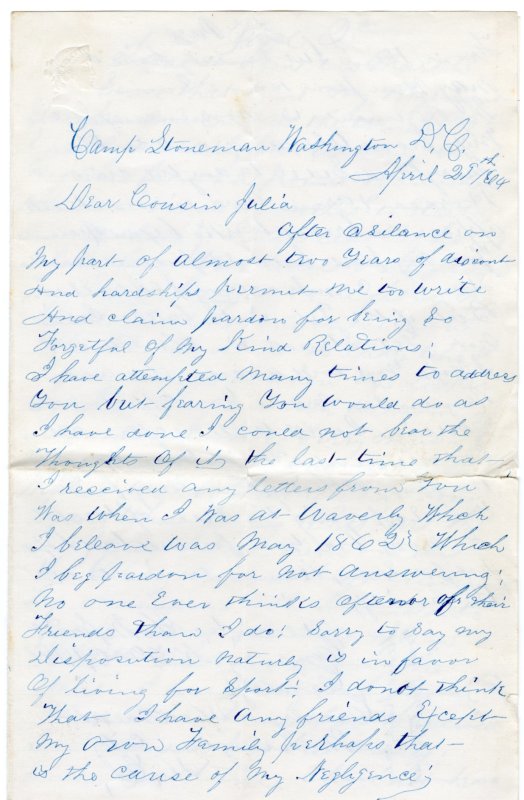 Camp Stoneman Washington D, C.
April 29th/64
Dear Cousin Julia
After a silance on
My part of almost two Years of
And hardships permit me too write
And claim pardon for being so
Forgetful of My Kind Relations;
I have attempted Many times to address
You but fearing You would do as
I have done I could not bear the
Thoughts Of it the last time that
I received any letters from You
Was when I Was at Waverly Which
I beleave was May 1862 Which
I beg pardon for not answering;
No one Ever thinks oftenor of their
Friends than I do; Sorry to Say my
Disposition naturly is in favor
Of living for Sport; I donot think
That I have any friends Except
My own Family perhaps that
is the cause of My Negligence;